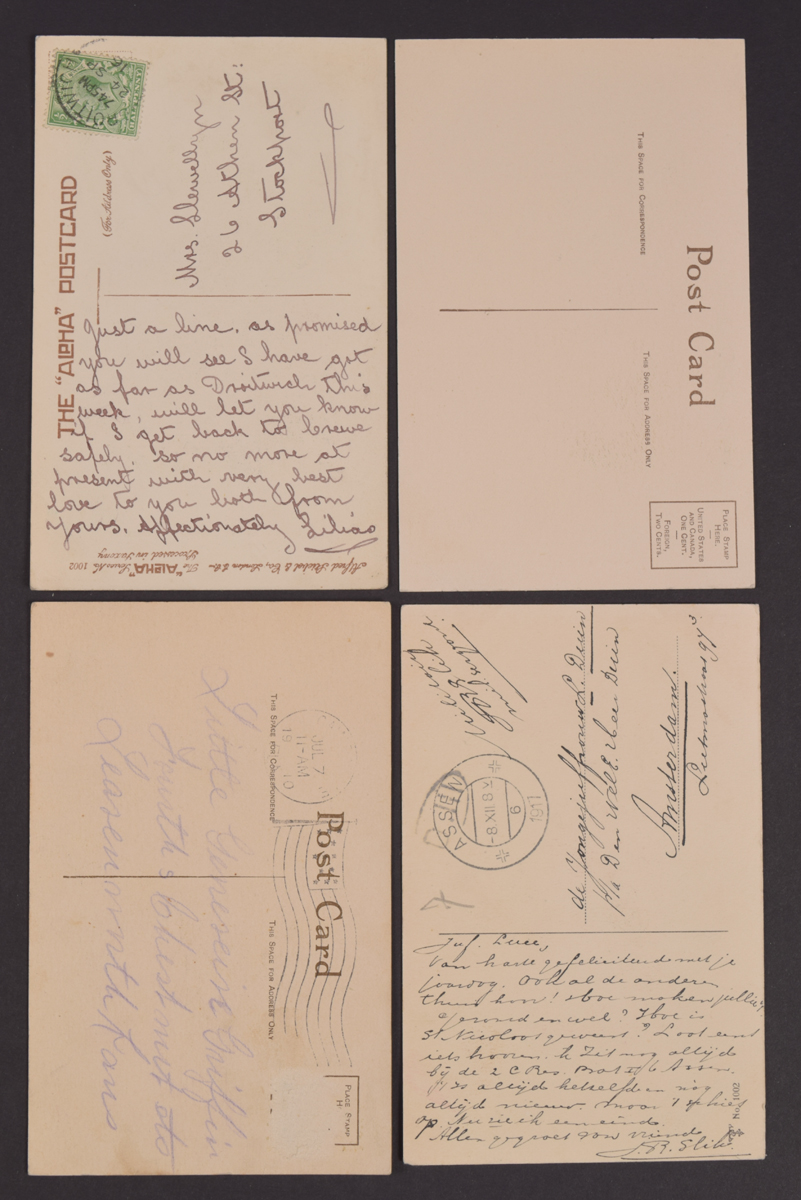 THE "ALPHA" POSTCARD
(For Address Only)
DROITWICH
7 45 PM
Mrs. Llewellyn
26 Athen St:
Stockport
Just a line, as promised
you will see I have got
as far as Droitwich this
week, will let you know
if I get back to Crewe
safely. so no more at
present with very best
love to you both from
yours, Affectionately Lilias
The "ALPHA" Series No. 1002
Post Card
THIS SPACE FOR CORRESPONDENCE
THIS SPACE FOR ADDRESS ONLY
PLACE STAMP
HERE.
UNITED STATES
AND CANADA,
ONE CENT.
FOREIGN,
TWO CENTS.
Post Card
THIS SPACE FOR CORRESPONDENCE
THIS SPACE FOR ADDRESS ONLY
PLACE STAMP
H
JUL 7
11-AM
1910
Griffin
Fourth & Chestnut sts
Leavenworth Kans
ASSEN
-8.XII.8V
6
1917
de Jongejuffrouw L. Duin
p/a Den WelE. Heer Duin
Amsterdam.
Juf. Luce,
Van harte gefeliciteerd met je
jaardag. Ook al de anderen
thuis hoor! Hoe maken jullie 't
gezond en wel? Hoe is
St Nicolaas geweest? Laat eens
iets hooren. Ik zit nog altijd
bij de 2 C Res. Assen.
't Is altijd hetzelfde en nog
altijd nieuws. maar 't schiet
op. Nu zie ik een einde.
Allen gegroet van vriend
J.R. Slik.
No 1002